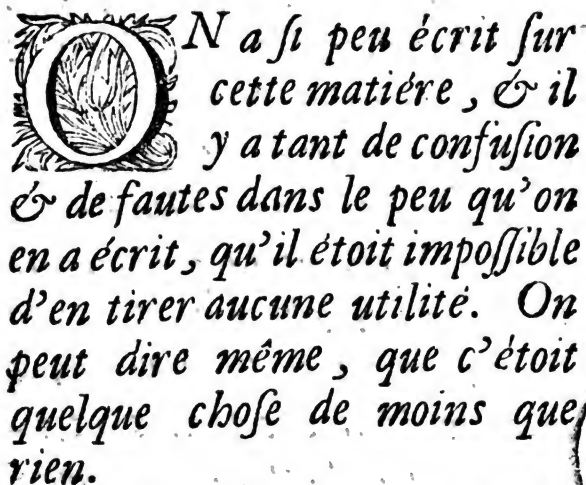 ON a ſi peu écrit ſur
cette matiére, & il
y a tant de confuſion
& de fautes dans le peu qu'on
en a écrit, qu'il étoit impoſſible
d'en tirer aucune utilité. On
peut dire même, que c'étoit
quelque choſe de moins que
rien.